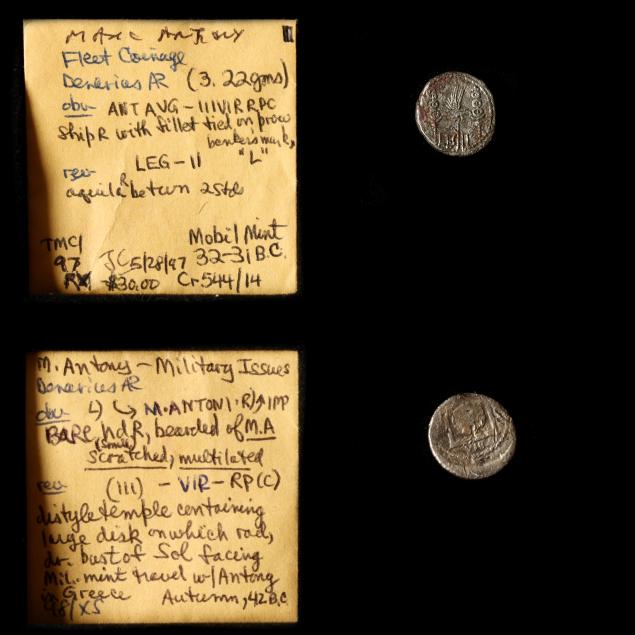 MARC ANTONY
Fleet Coinage
Denarius AR (3.22gms)
obv ANT AVG - IIIVIR RPC
Ship R with fillet tied on prow
bankers mark,
"L"
rev LEG - II
aquila R betwn 2 stds
TMC/ Mobil Mint
97 JC 5/28/97 32-31 B.C.
RX $30.00 Cr 544/14
M. Antony - Military Issues
Denarius AR
obv L) M.ANTONI.R) IMP
BARE hd R, bearded of M.A
scratched, multilated
rev (III) - VIR - RP(C)
distyle temple containing
large disk on which rad,
dr. bust of Sol facing
Mil. mint travel w/Antony
in Greece Autumn, 42 B.C.
98/XS